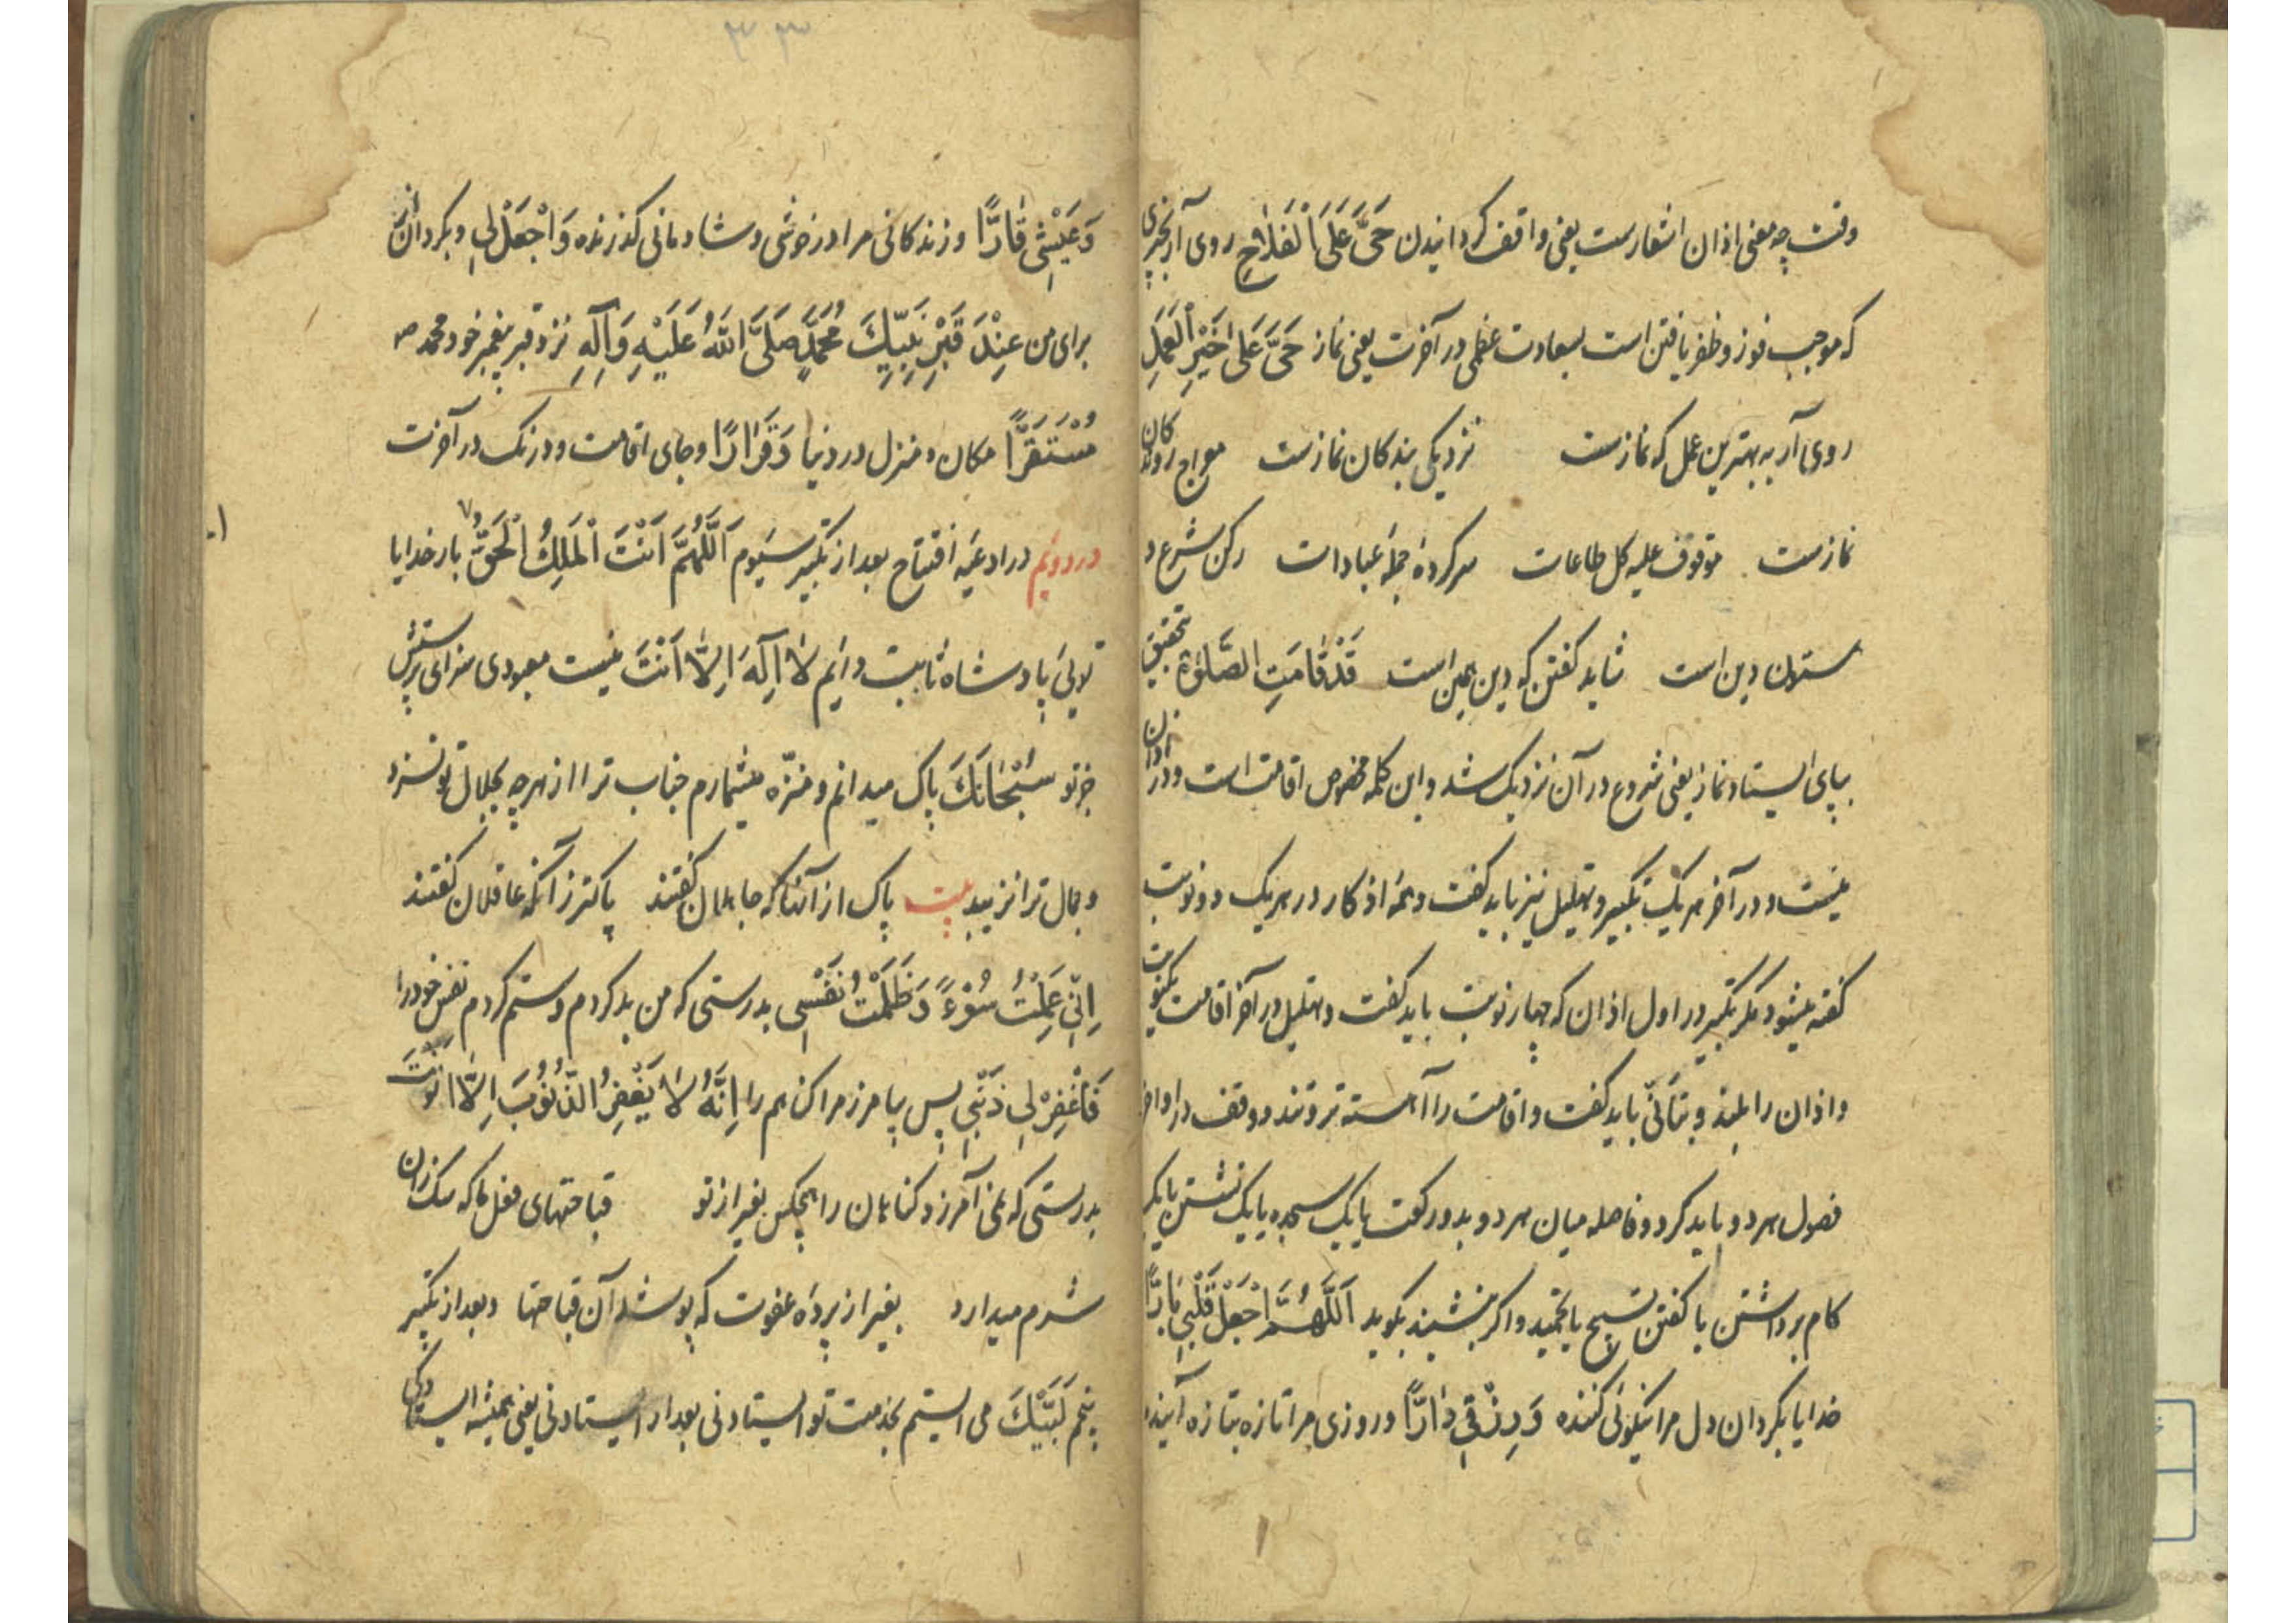 وقت چه معنی اذان اشعارست یعنی واقف کردانیدن حَیَّ عَلَی الْفَلاٰحِ روی آر بچیزی
که موجب فوز و ظفر یافتن است بسعادت عظمی در آخرت یعنی نماز حَیَّ عَلیٰ خَیْرِ الْعَمَلِ
روی آر به بهترین عمل که نمازست نزدیکی بندکان نمازست معراج روندکان
نمازست موقوف علیه کل طاعات سرکرده جملهٔ عبادات رکن شرع و
ستون دین است شاید کفتن که دین همین است قَدْ قٰامَتِ الصَّلوٰة تحقیق
بپای ایستاد نماز یعنی شروع در آن نزدیک شد و این کلمه مخصوص اقامت است و در اذان
نیست و در آخر هر یک تکبیر و تهلیل نیز باید کفت و همهٔ اذکار در هر یک دو نوبت
کفته میشود مکر تکبیر در اول اذان که چهار نوبت باید کفت و تهلیل در آخر اقامت یکنوبت
و اذان را بلند و بتأنّی باید کفت و اقامت را آهسته تر و تند و وقف در اواخر
فصول هر دو باید کرد و فاصله میان هر دو بدو رکعت یا یک سجده یا یک نشستن یا یک
کام برداشتن یا کفتن تسبیح یا تحمید و اکر بنشیند بکوید اَللّٰهُمَّ اجْعَلْ قَلْبِی بٰارًّا
خدایا بکردان دل مرا نیکوئی کننده وَ رِزْقِی دٰارًّا و روزی مرا تازه بتازه آینده
٣٣
وَ عَیْشِی قٰارًّا و زندکانی مرا در خوشی و شادمانی کذرنده وَ اجْعَلْ لِی و بکردان
برای من عِنْدَ قَبْرِ نَبِیِّكَ مُحَمَّدٍ صَلَّی اللّٰهُ عَلَیْهِ وَ اٰلِهِ نزد قبر پیغمبر خود محمد ص
مُسْتَقَرًّا مکان و منزل در دنیا وَ قَرٰارًا و جای اقامت و درنک در آخرت
در دویم در ادعیهٔ افتتاح بعد از تکبیر سیوم اَللّٰهُمَّ اَنْتَ الْمَلِكُ الْحَقُّ بار خدایا
تویی پادشاه ثابت و دایم لاٰ اِلٰهَ اِلاّٰ اَنْتَ نیست معبودی سزای پرستش
جز تو سُبْحٰانَكَ پاک میدانم و منزّه میشمارم جناب ترا از هر چه بجلال تو نسزد
و بجمال ترا نزیبد بیت پاک از آنها که جاهلان کفتند پاکتر زآنکه عاقلان کفتند
اِنِّی عَمِلْتُ سُوْءً وَ ظَلَمْتُ نَفْسِی بدرستی که من بد کردم و ستم کردم نفس خود را
فَاغْفِرْ لِی ذَنْبِی پس بیامرز مرا کناهم را اِنَّهُ لاٰ یَغْفِرُ الذُّنُوْبَ اِلاّٰ اَنْتَ
بدرستی که نمی آمرزد کناهان را هیچکس بغیر از تو قباحتهای فعل ما که سک زان
شرم میدارد بغیر از پردهٔ عفوت که پوشد آن قباحتها و بعد از تکبیر
پنجم لَبَّیْكَ می ایستم بخدمت تو ایستادنی بعد از ایستادنی یعنی همیشه ایستادکی